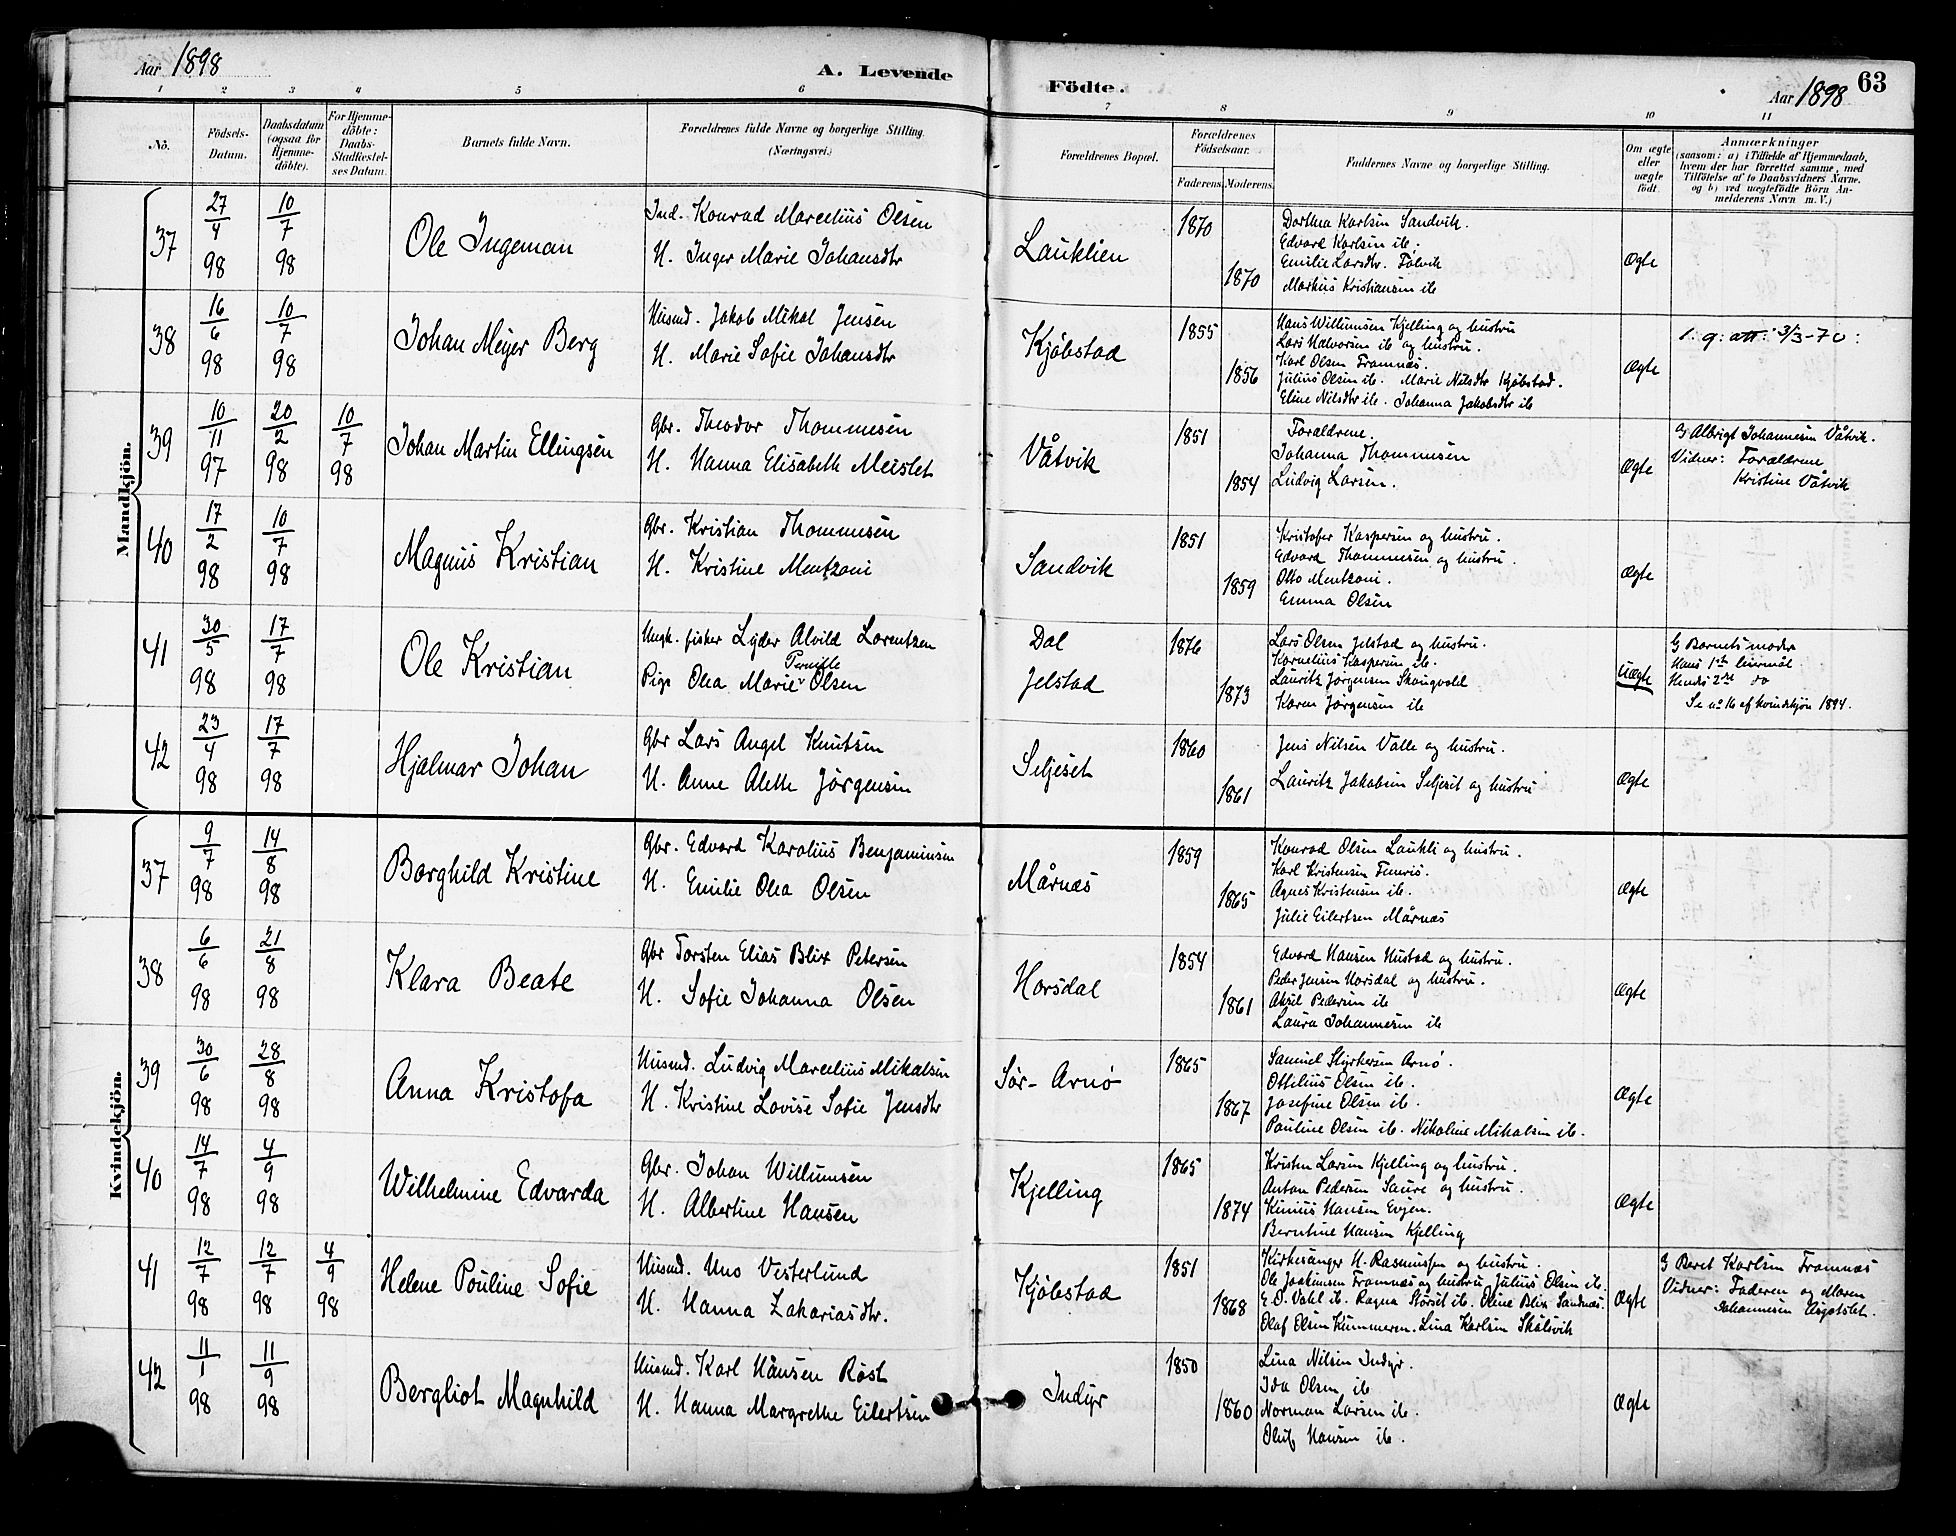 Aar 1898
A. Levende
Födte.
Aar 1898
63
1 2 3 4 5 6 7 8 9 10 11
No.
Födsels-Datum.
Daabsdatum (ogsaa for Hjemme-döbte).
For Hjemme-döbte: Daabs-Stadfæstel-ses Datum.
Barnets fulde Navn.
Forældrenes fulde Navne og borgerlige Stilling. (Næringsvei.)
Forældrenes Bopæl.
Forældrenes Födselsaar.
Faderens. Moderens.
Faddernes Navne og borgerlige Stilling.
Om ægte eller uægte födt.
Anmærkninger
(saasom: a) i Tilfælde af Hjemmedaab,
hvem der har forrettet samme, med
Tilföielse af to Daabsvidners Navne.
og b) ved uægtefödte Börn An-
melderens Navn m. V.)
Mandkjön.
37 27/4 98 10/7 98
Ole Ingeman
Ind. Konrad Marcelius Olsen
H. Inger Marie Johansdtr
Lauklien
1870
1870
Dorthea Karlsen Sandvik.
Edvard Karlsen ib.
Emilie Larsdtr.
Markus Kristiansen ib
Ægte
38 16/6 98 10/7 98
Johan Meyer Berg
Husmd. Jakob Mikal Jensen
H. Marie Sofie Johansdtr
Kjøbstad
1855
1856
Hans Willumsen Kjelling og hustru
Lars Halvorsen ib og hustru.
Karl Olsen Framnæs.
Julius Olsen ib. Marie Nilsdtr Kjøbstad.
Eline Nilsdtr ib. Johanna Jakobsdtr ib
Ægte
39 10/11 97 20/2 98 10/7 98
Johan Martin Ellingsen
Gbr. Theodor Thommesen
H. Hanna Elisabeth Meisler
Våtvik
1851
1854
Forældrene.
Johanna Thommesen
Ludvig Larsen.
Ægte
G Albrigt Johannesen Våtvik.
Vidner: Forældrene
Kristine Våtvik
40 17/2 98 10/7 98
Magnus Kristian
Gbr. Kristian Thommesen
H. Kristine Mentzoni
Sandvik
1851
1859
Kristofer Kaspersen og hustru.
Edvard Thommesen og hustru.
Otto Mentzoni.
Emma Olsen
Ægte
41 30/5 98 17/7 98
Ole Kristian
Ungk. fisker Lyder Alvild Lorentzen
Pernille
Pige Olea Marie Olsen
Dal
Jelstad
1876
1873
Lars Olsen Jelstad og hustru.
Kornelius Kaspersen ib.
Lauritz Jørgensen Skaugvold
Karen Jørgensen ib
Uægte
G Barnets moder
Hans 1ste leiermål
Hendes 2det do
Se no 16 af kvindekjøn 1894.
42 23/4 98 17/7 98
Hjalmar Johan
Gbr Lars Angel Knutsen
H. Anne Alette Jørgensen
Seljeset
1860
1861
Jens Nilsen Valle og hustru.
Lauritz Jakobsen Seljeset og hustru
Ægte
Kvindekjön.
37 9/7 98 14/8 98
Borghild Kristine
Gbr. Edvard Karolius Benjaminsen
H. Emilie Olea Olsen
Mårnæs
1859
1865
Konrad Olsen Laukli og hustru.
Karl Kristensen Femris.
Agnes Kristensen ib.
Julie Eilertsen Mårnæs
Ægte
38 6/6 98 21/8 98
Klara Beate
Gbr Torsten Elias Blix Petersen
H. Sofie Johanna Olsen
Horsdal
1854
1861
Edvard Hansen Hustad og hustru.
Peder Jensen Horsdal og hustru.
Aksel Pedersen ib
Laura Johannesen ib
Ægte
39 30/6 98 28/8 98
Anna Kristofa
Husmd. Ludvig Marcelius Mikalsen
H. Kristine Lovise Sofie Jensdtr
Sør-Arnø
1865
1867
Samuel Styrkersen Arnø.
Ottilius Olsen ib.
Josefine Olsen ib.
Pauline Olsen ib. Nikoline Mikalsen ib.
Ægte
40 14/7 98 4/9 98
Wilhelmine Edvarda
Gbr. Johan Willumsen
H. Albertine Hansen
Kjelling
1865
1874
Kristen Larsen Kjelling og hustru.
Anton Pedersen Saure og hustru.
Hansen Evjen.
Berntine Hansen Kjelling
Ægte
41 12/7 98 12/7 98 4/9 98
Helene Pouline Sofie
Husmd. Uno Vesterlund
H. Hanna Zakariasdtr.
Kjøbstad
1851
1868
Kirkesanger H. Rasmussen og hustru.
Ole Joakimsen Framnæs og hustru. Julius Olsen ib.
E.D. Vahl ib. Ragna Størset ib. Oline Blix Sandnæs.
Olaf Olsen Kummeren. Lina Karlsen Skålsvik
Ægte
G Beret Karlsen Framnæs
Vidner: Faderen og Maren
Johannesen
42 11/1 98 11/9 98
Bergliot Magnhild
Husmd. Karl Hansen Røst
H. Hanna Margrethe Eilertsen
Indyr
1850
1860
Lina Nilsen Indyr.
Ida Olsen ib
Norman Larsen ib.
Oluf Hansen ib.
Ægte